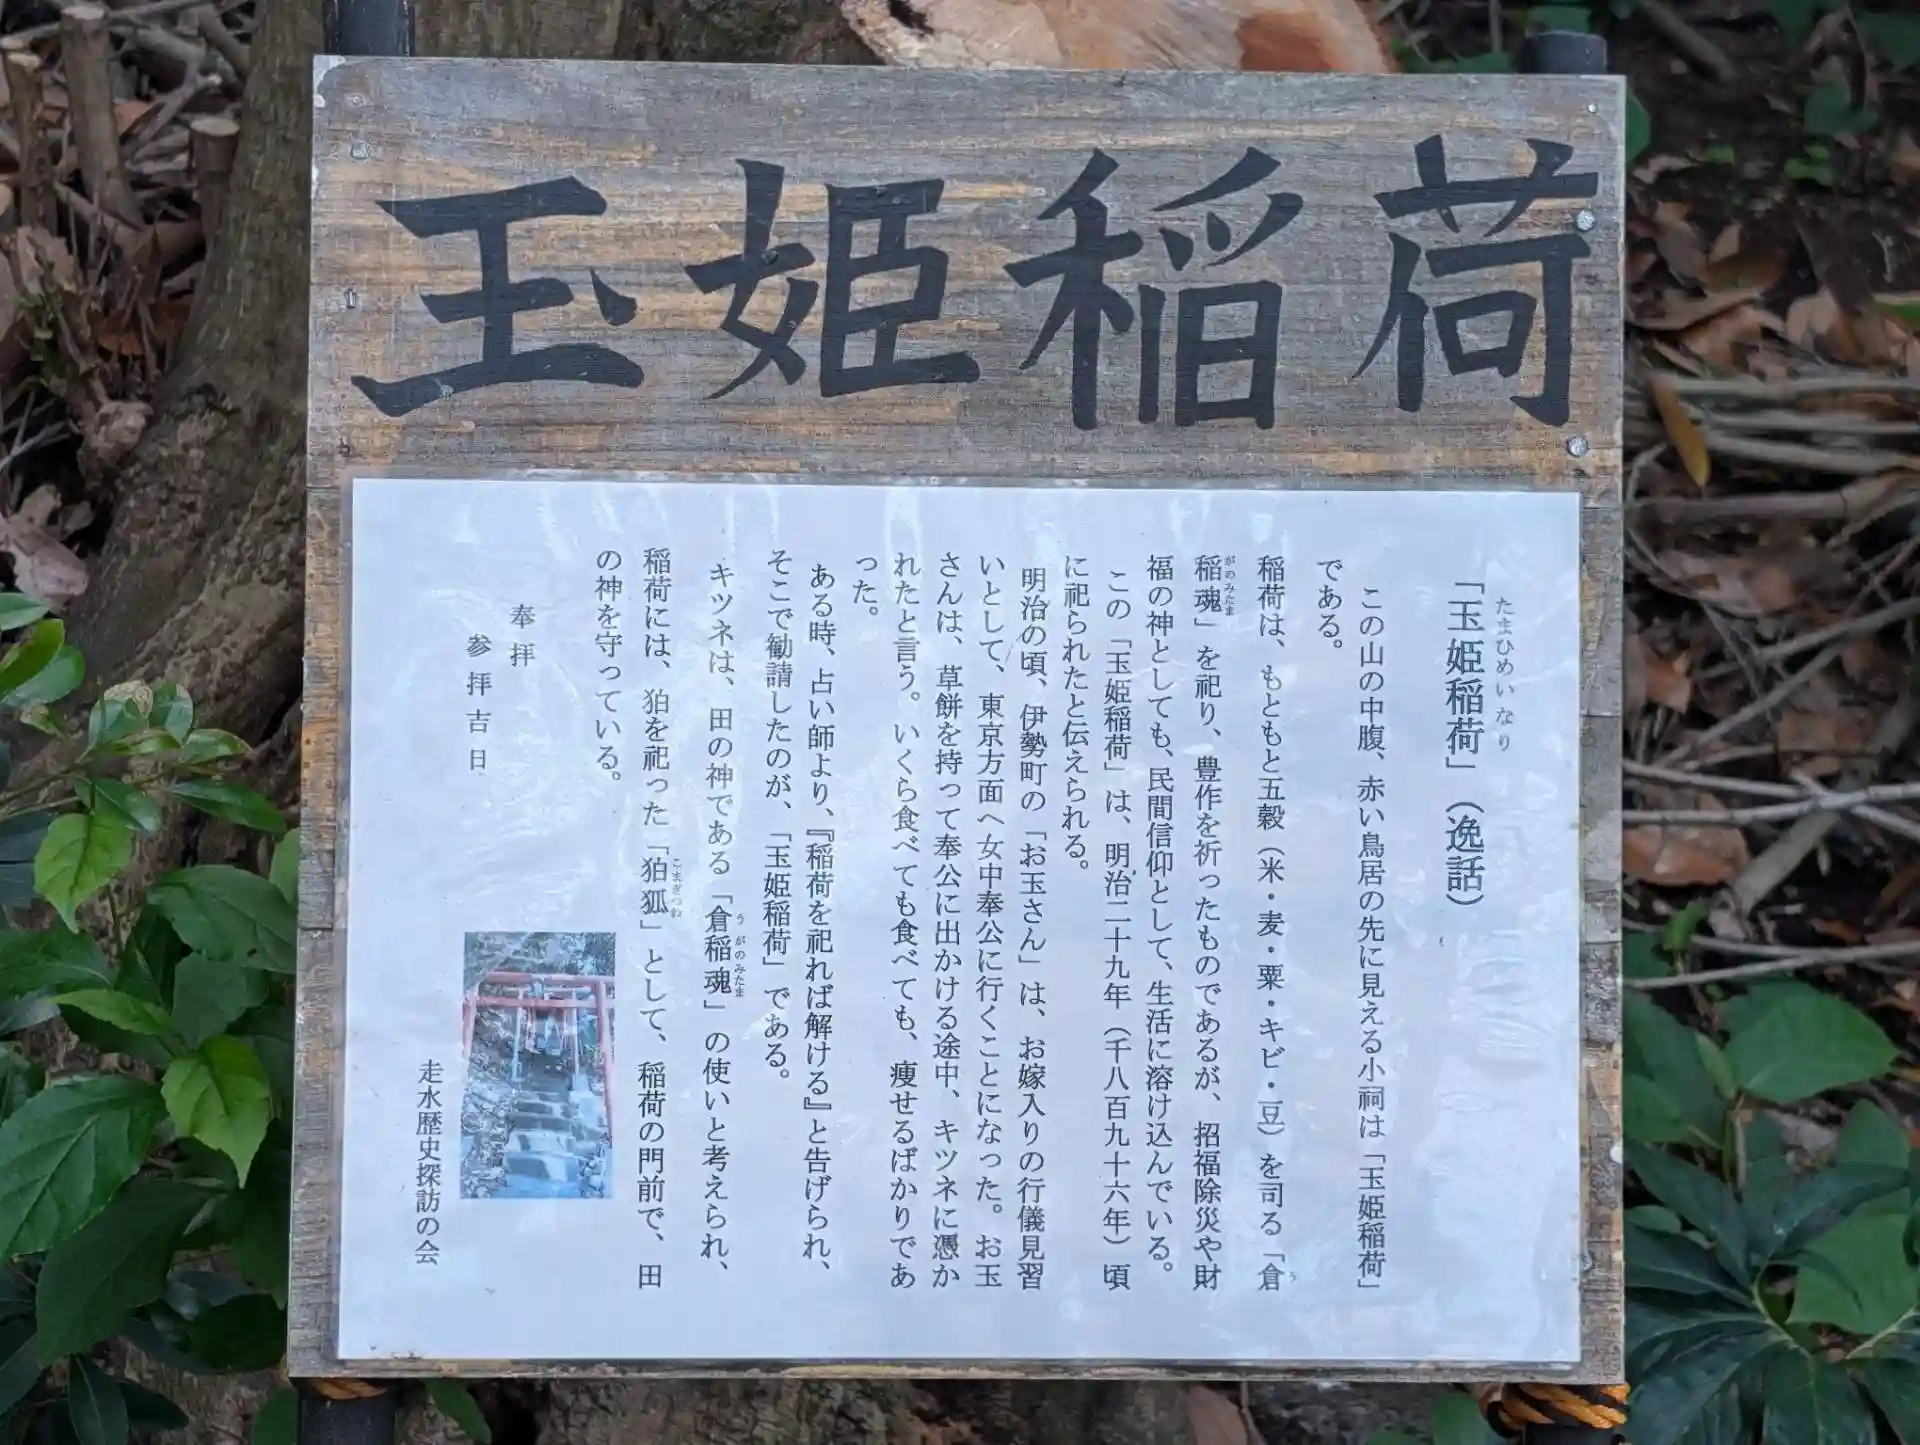 玉姫稲荷
たまひめいなり
「玉姫稲荷」（逸話）
この山の中腹、赤い鳥居の先に見える小祠は「玉姫稲荷」
である。
稲荷は、もともと五穀（米・麦・粟・キビ・豆）を司る「倉
う
がのみたま
稲魂」を祀り、豊作を祈ったものであるが、招福除災や財
福の神としても、民間信仰として、生活に溶け込んでいる。
この「玉姫稲荷」は、明治二十九年（千八百九十六年）頃
に祀られたと伝えられる。
明治の頃、伊勢町の「お玉さん」は、お嫁入りの行儀見習
いとして、東京方面へ女中奉公に行くことになった。お玉
さんは、草餅を持って奉公に出かける途中、キツネに憑か
れたと言う。いくら食べても食べても、痩せるばかりであ
った。
ある時、占い師より、『稲荷を祀れば解ける』と告げられ、
そこで勧請したのが、「玉姫稲荷」である。
キツネは、田の神である「倉稲魂」の使いと考えられ、
うがのみたま
稲荷には、狛を祀った「狛狐」として、稲荷の門前で、田
こまぎつね
の神を守っている。
奉拝
参拝吉日
走水歴史探訪の会